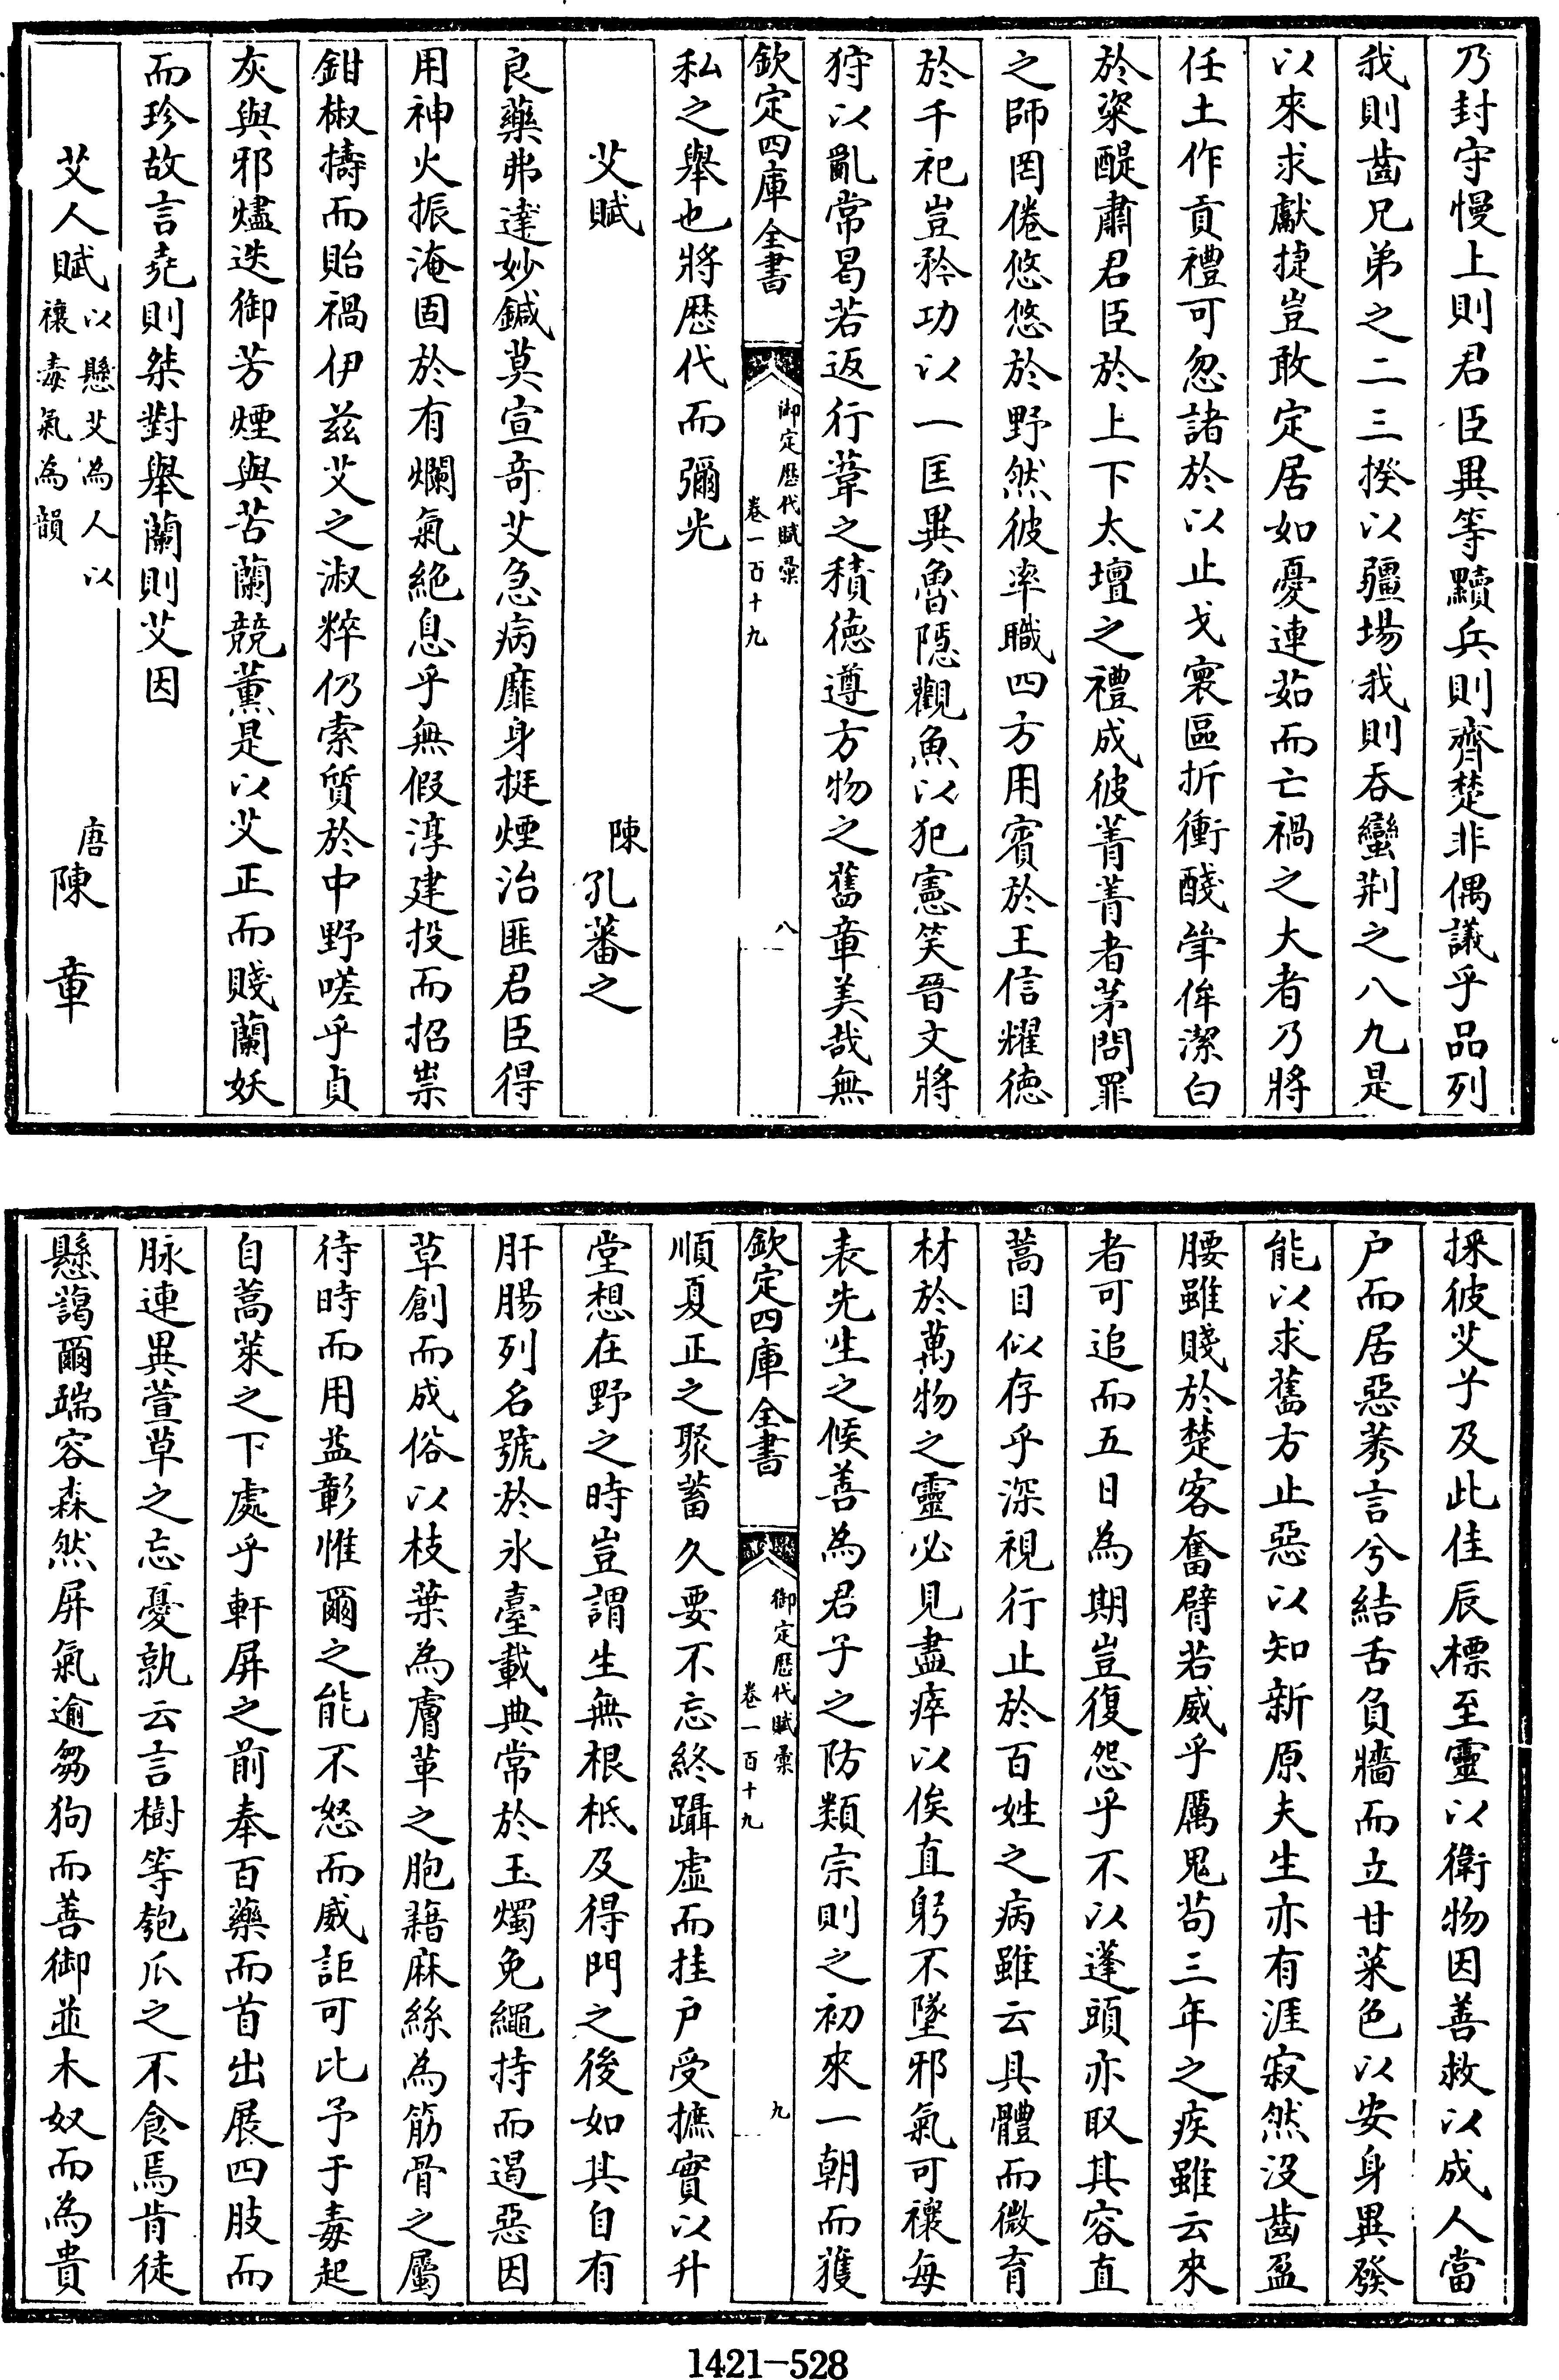 乃封守慢上則君臣異等黷兵則齊楚非偶議乎品列
我則齒兄弟之二三揆以疆場我則吞蠻荆之八九是
以來求獻捷豈敢定居如憂連茹而亡禍之大者乃將
任土作貢禮可忽諸於以止戈寰區折衝醆斚侔潔白
於粢醍肅君臣於上下太壇之禮成彼菁菁者茅問罪
之師罔倦悠悠於野然彼率職四方用賓於王信耀徳
於千祀豈矜功以一匡異魯隠觀魚以犯憲笑晉文將
狩以亂常曷若返行葦之積徳遵方物之舊章美哉無
欽定四庫全書
御定歷代賦彙
卷一百十九
八
私之舉也將歷代而彌光
艾賦
陳孔蕃之
良藥弗達妙鍼莫宣奇艾急病靡身挺煙治匪君臣得
用神火振淹固於有爛氣絶息乎無假淳建投而招祟
鉗椒擣而貽禍伊兹艾之淑粹仍索質於中野嗟乎貞
灰與邪燼迭御芳煙與苦蘭競薰是以艾正而賤蘭妖
而珍故言堯則桀對舉蘭則艾因
艾人賦
以懸艾為人以
禳毒氣為韻
唐陳章
採彼艾兮及此佳辰標至靈以衛物因善救以成人當
户而居惡莠言兮結舌負牆而立甘菜色以安身異發
能以求舊方止惡以知新原夫生亦有涯寂然没齒盈
腰雖賤於楚客奮臂若威乎厲鬼茍三年之疾雖云來
者可追而五日為期豈復怨乎不以蓬頭亦取其容直
蒿目似存乎深視行止於百姓之病雖云具體而微育
材於萬物之靈必見盡瘁以俟直躬不墜邪氣可禳每
表先生之候善為君子之防類宗則之初來一朝而獲
欽定四庫全書
御定歷代賦彙
卷一百十九
九
順夏正之聚蓄久要不忘終躡虚而挂户受摭實以升
堂想在野之時豈謂生無根柢及得門之後如其自有
肝腸列名號於氷臺載典常於玉燭免繩持而遏惡因
草創而成俗以枝葉為膚革之胞藉麻絲為筋骨之屬
待時而用益彰惟爾之能不怒而威詎可比予于毒起
自蒿萊之下處乎軒屏之前奉百藥而首出展四肢而
脉連異萱草之忘憂孰云言樹等匏瓜之不食焉肯徒
懸藹爾端容森然屏氣逾芻狗而善御並木奴而為貴
1421-528